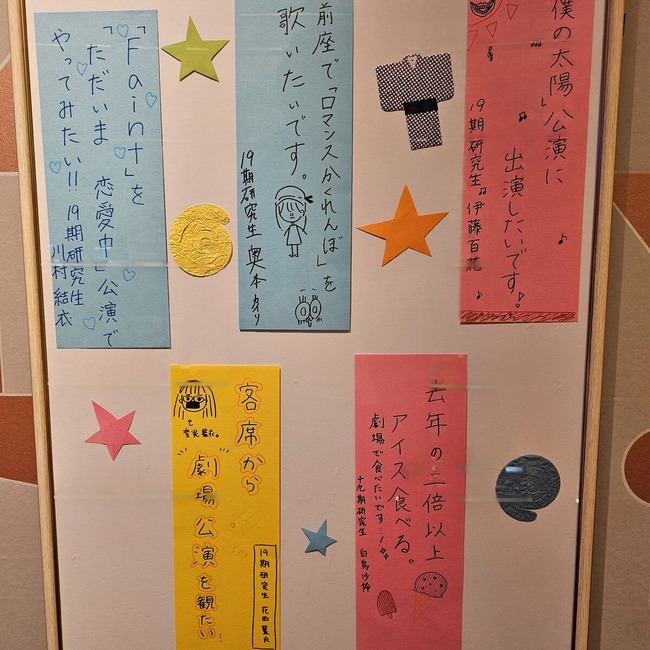 僕の太陽」公演に
出演したいです♪。
19期研究生 伊藤百花
前座で「ロマンスかくれんぼ」を
歌いたいです。
19期研究生 奥本カイリ
「Faint」を
「ただいま 恋愛中」公演で
やってみたい!!
19期研究生
川村結衣
去年の二倍以上
アイス食べる。
劇場で食べたいです…!
十九期研究生 白鳥沙怜
客席から
劇場公演を観たい…
19期研究生 花田藍衣